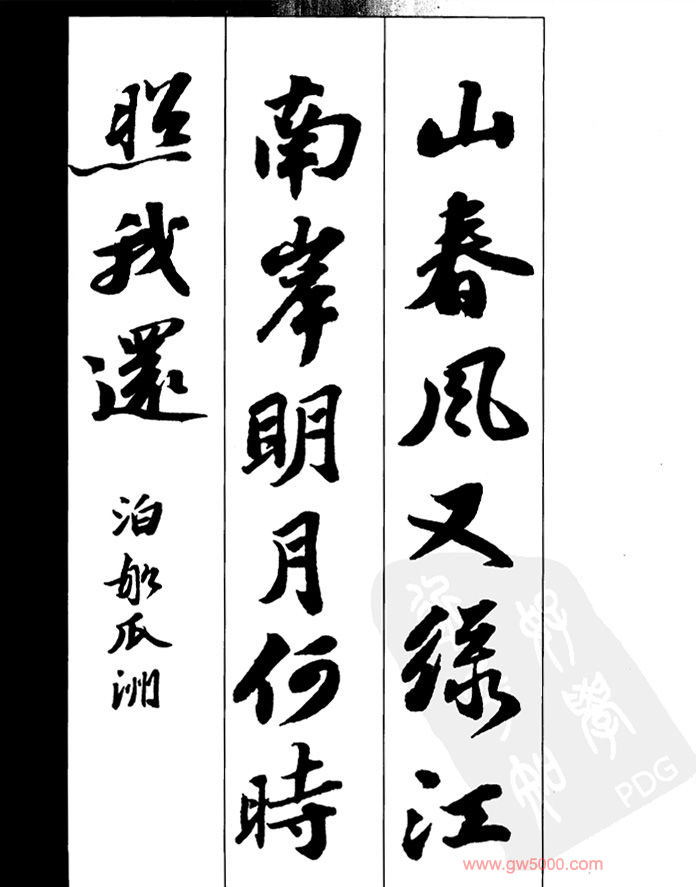 山春风又綠江
南岸明月何時
照我還
泊船瓜洲
PDG
www.gw5000.com